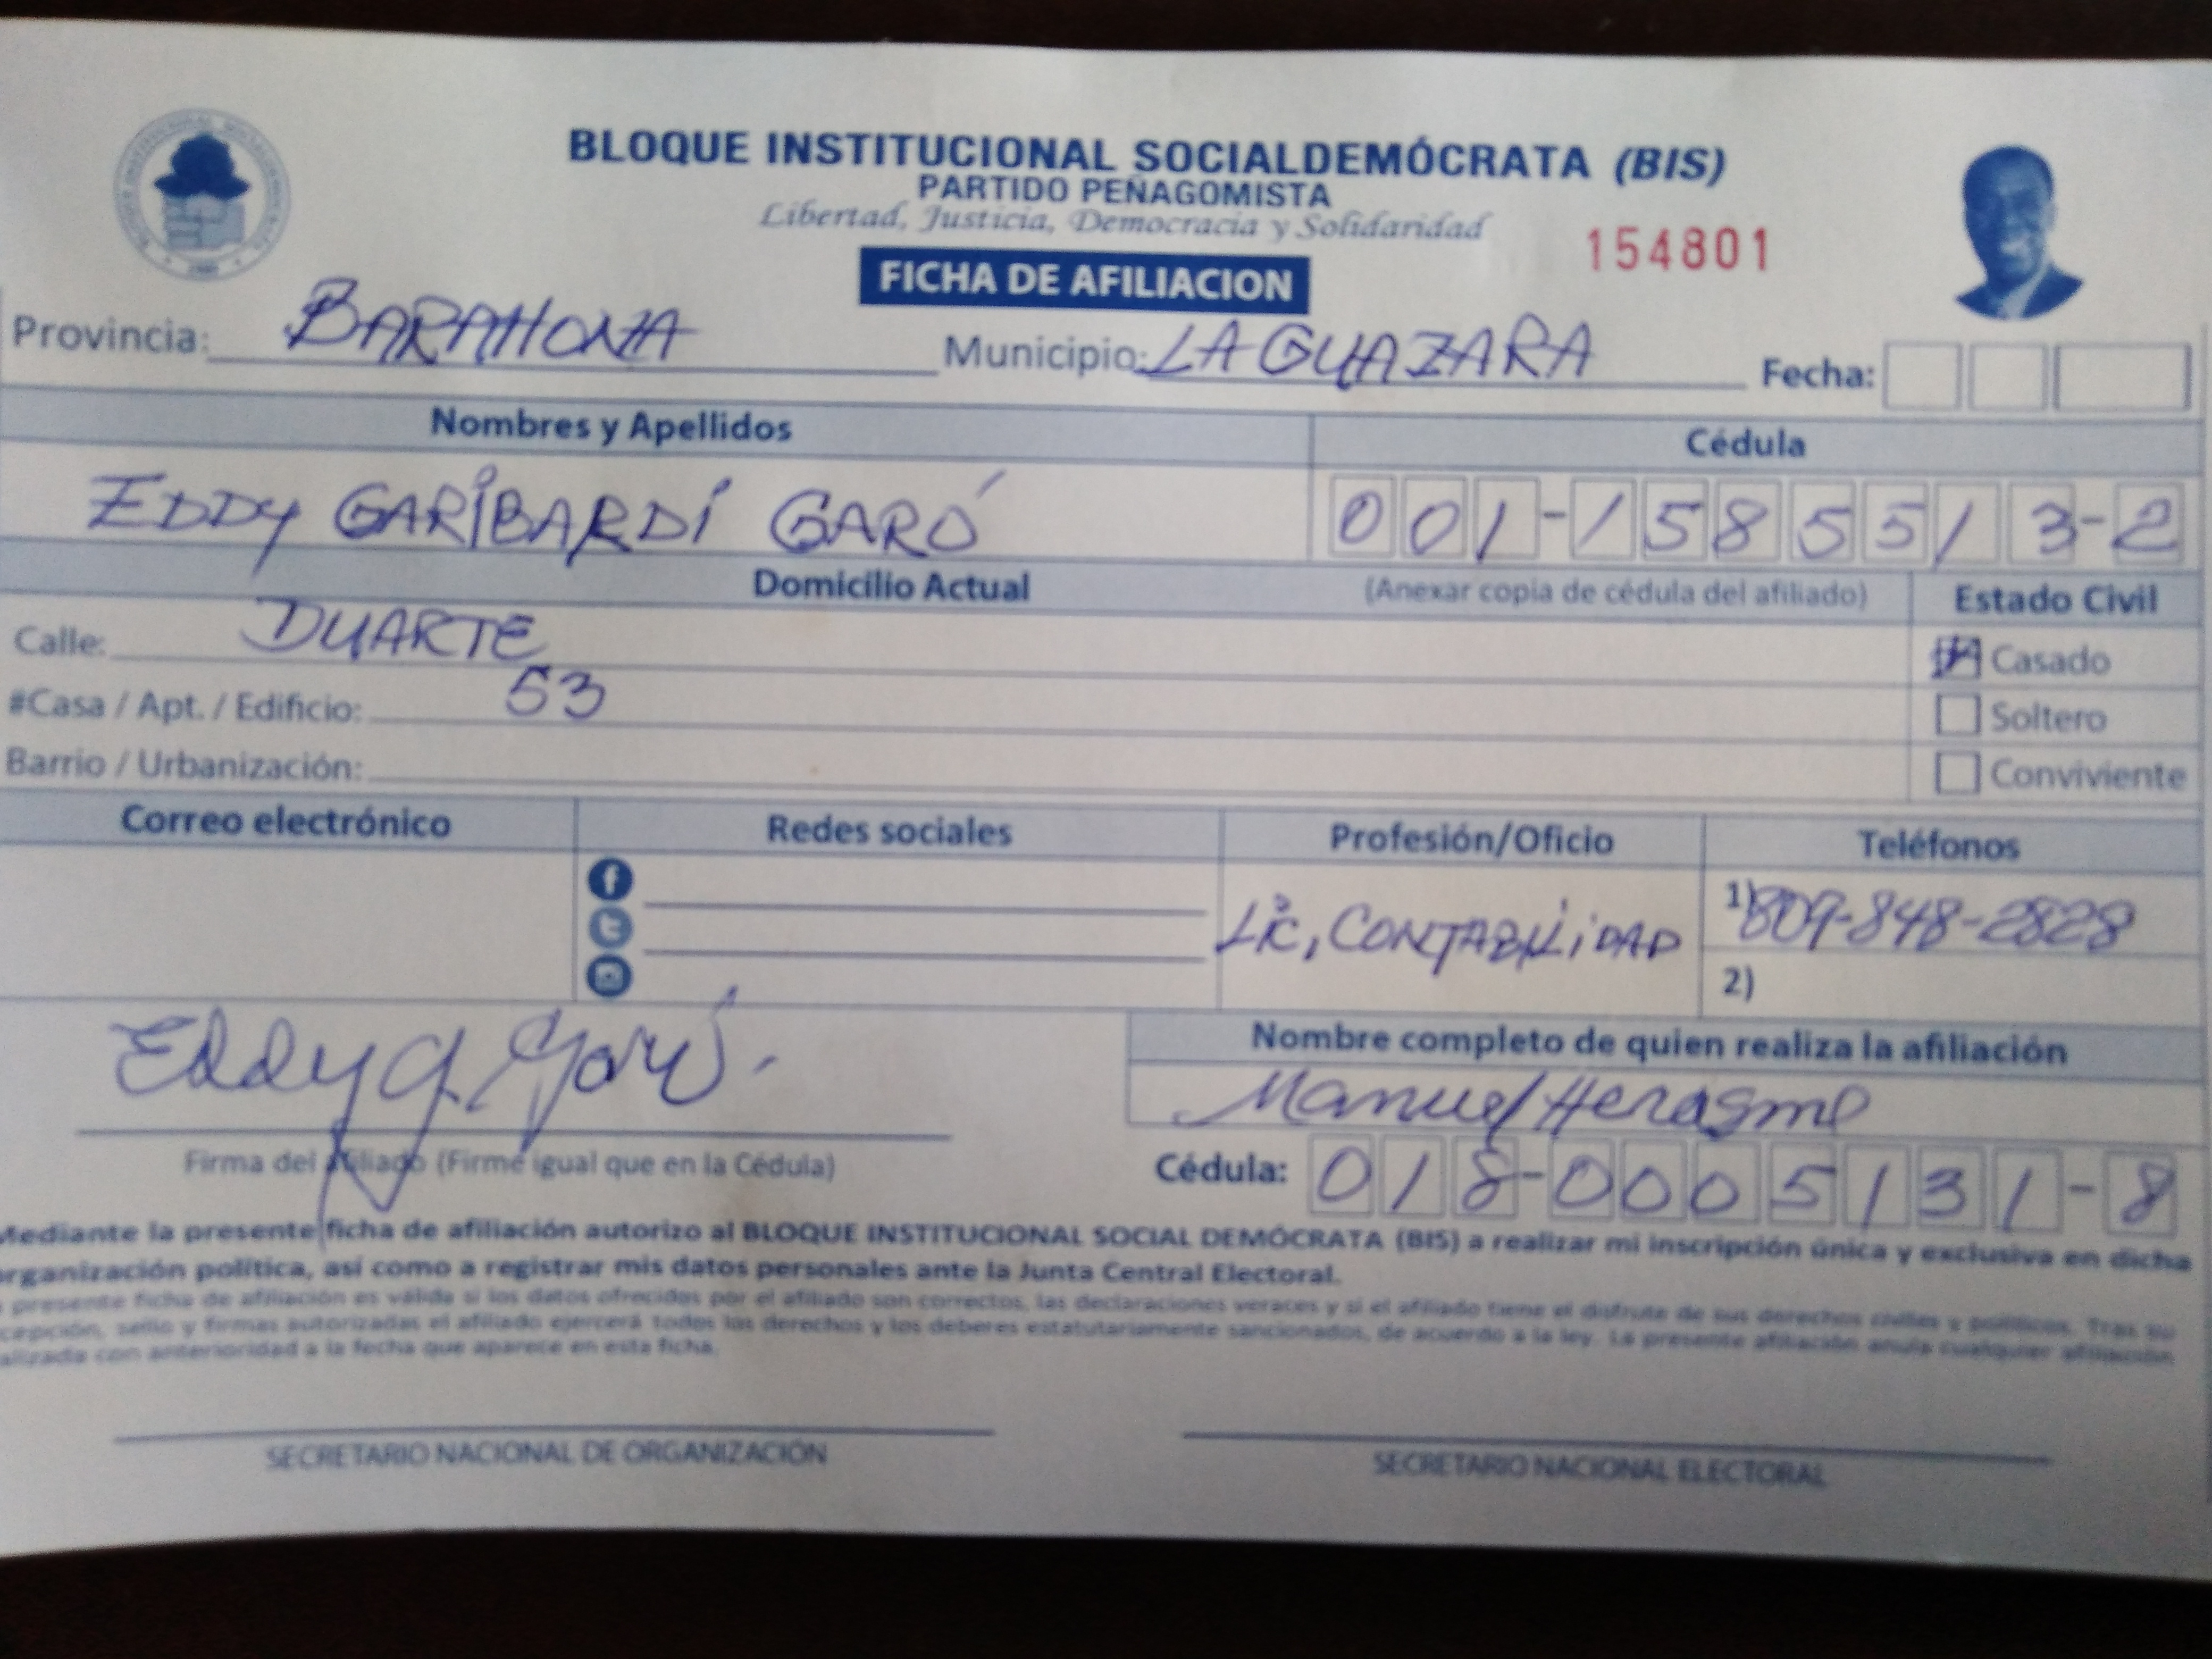 BLOQUE INSTITUCIONAL SOCIALDEMÓCRATA (BIS)
PARTIDO PEÑAGOMISTA
Libertad, Justicia, Democracia y Solidaridad
154801
FICHA DE AFILIACION
Provincia: BARAHONA Municipio: LA GUAZARA Fecha:
Nombres y Apellidos Cédula
EDDY GARIBARDI GARÓ 001-1585513-2
Domicilio Actual (Anexar copia de cédula del afiliado) Estado Civil
Calle: DUARTE Casado
#Casa / Apt. / Edificio: 53 Soltero
Barrio / Urbanización: Conviviente
Correo electrónico Redes sociales Profesión/Oficio Teléfonos
Lic, CONTABILIDAD 1) 809-848-2828
2)
Eddy G. Garó.
Nombre completo de quien realiza la afiliación
Manuel Herasme
Firma del afiliado (Firme igual que en la Cédula) Cédula: 018-0005131-8
Mediante la presente ficha de afiliación autorizo al BLOQUE INSTITUCIONAL SOCIAL DEMÓCRATA (BIS) a realizar mi inscripción única y exclusiva en dicha
organización política, así como a registrar mis datos personales ante la Junta Central Electoral.
presente ficha de afiliación es válida si los datos ofrecidos por el afiliado son correctos, las declaraciones veraces y si el afiliado tiene el disfrute de sus derechos civiles y políticos. Tras su
sello y firmas autorizadas el afiliado ejercerá todos los derechos y los deberes estatutariamente sancionados, de acuerdo a la ley. La presente afiliación anula cualquier afiliación
con anterioridad a la fecha que aparece en esta ficha.
SECRETARIO NACIONAL DE ORGANIZACIÓN SECRETARIO NACIONAL ELECTORAL